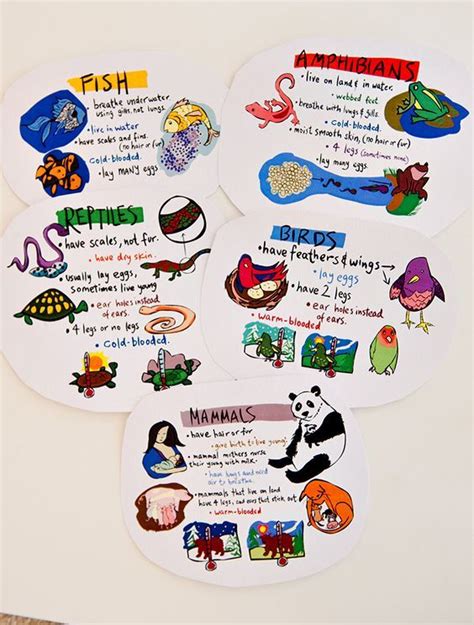 FISH
• breathe underwater
using gills, not lungs.
• live in water
• have scales and fins.
(no hair or fur)
• cold-blooded
• lay MANY eggs.
AMPHIBIANS
• live on land & in water.
• webbed feet
• breathe with lungs & gills.
• cold-blooded.
• moist smooth skin, (no hair or fur)
• 4 legs (sometimes none)
• lay many eggs.
REPTILES
• have scales, not fur.
• have dry skin.
• usually lay eggs,
sometimes live young
• ear holes instead
of ears.
• 4 legs or no legs
• cold-blooded.
BIRDS
• have feathers & wings
• lay eggs
• have 2 legs
• ear holes instead
of ears.
• warm-blooded
MAMMALS
• have hair or fur
• give birth to live young!
• mammal mothers nurse
their young with milk.
• have lungs and need
air to breathe.
• mammals that live on land
have 4 legs, and ears that stick out
• warm-blooded